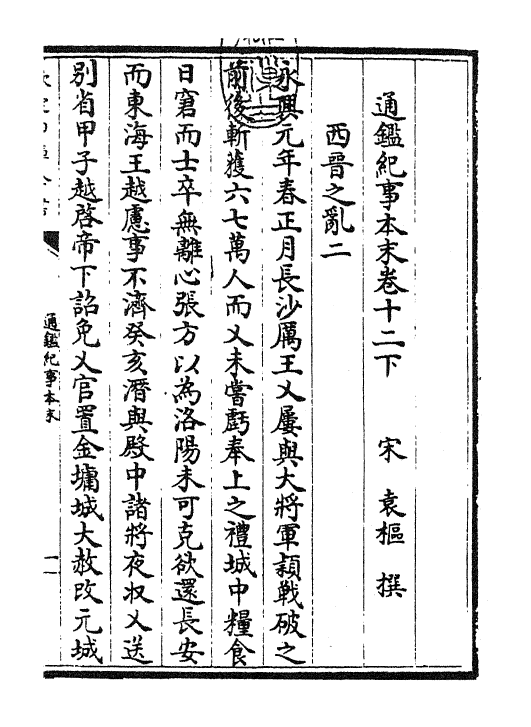 通鑑紀事本末卷十二下
宋 袁樞 撰
西晉之亂二
永興元年春正月長沙厲王乂屢與大將軍穎戰破之
前後斬獲六七萬人而乂未嘗虧奉上之禮城中糧食
日窘而士卒無離心張方以為洛陽未可克欲還長安
而東海王越慮事不濟癸亥潛與殿中諸將夜收乂送
別省甲子越啓帝下詔免乂官置金墉城大赦改元城
通鑑紀事本末
一